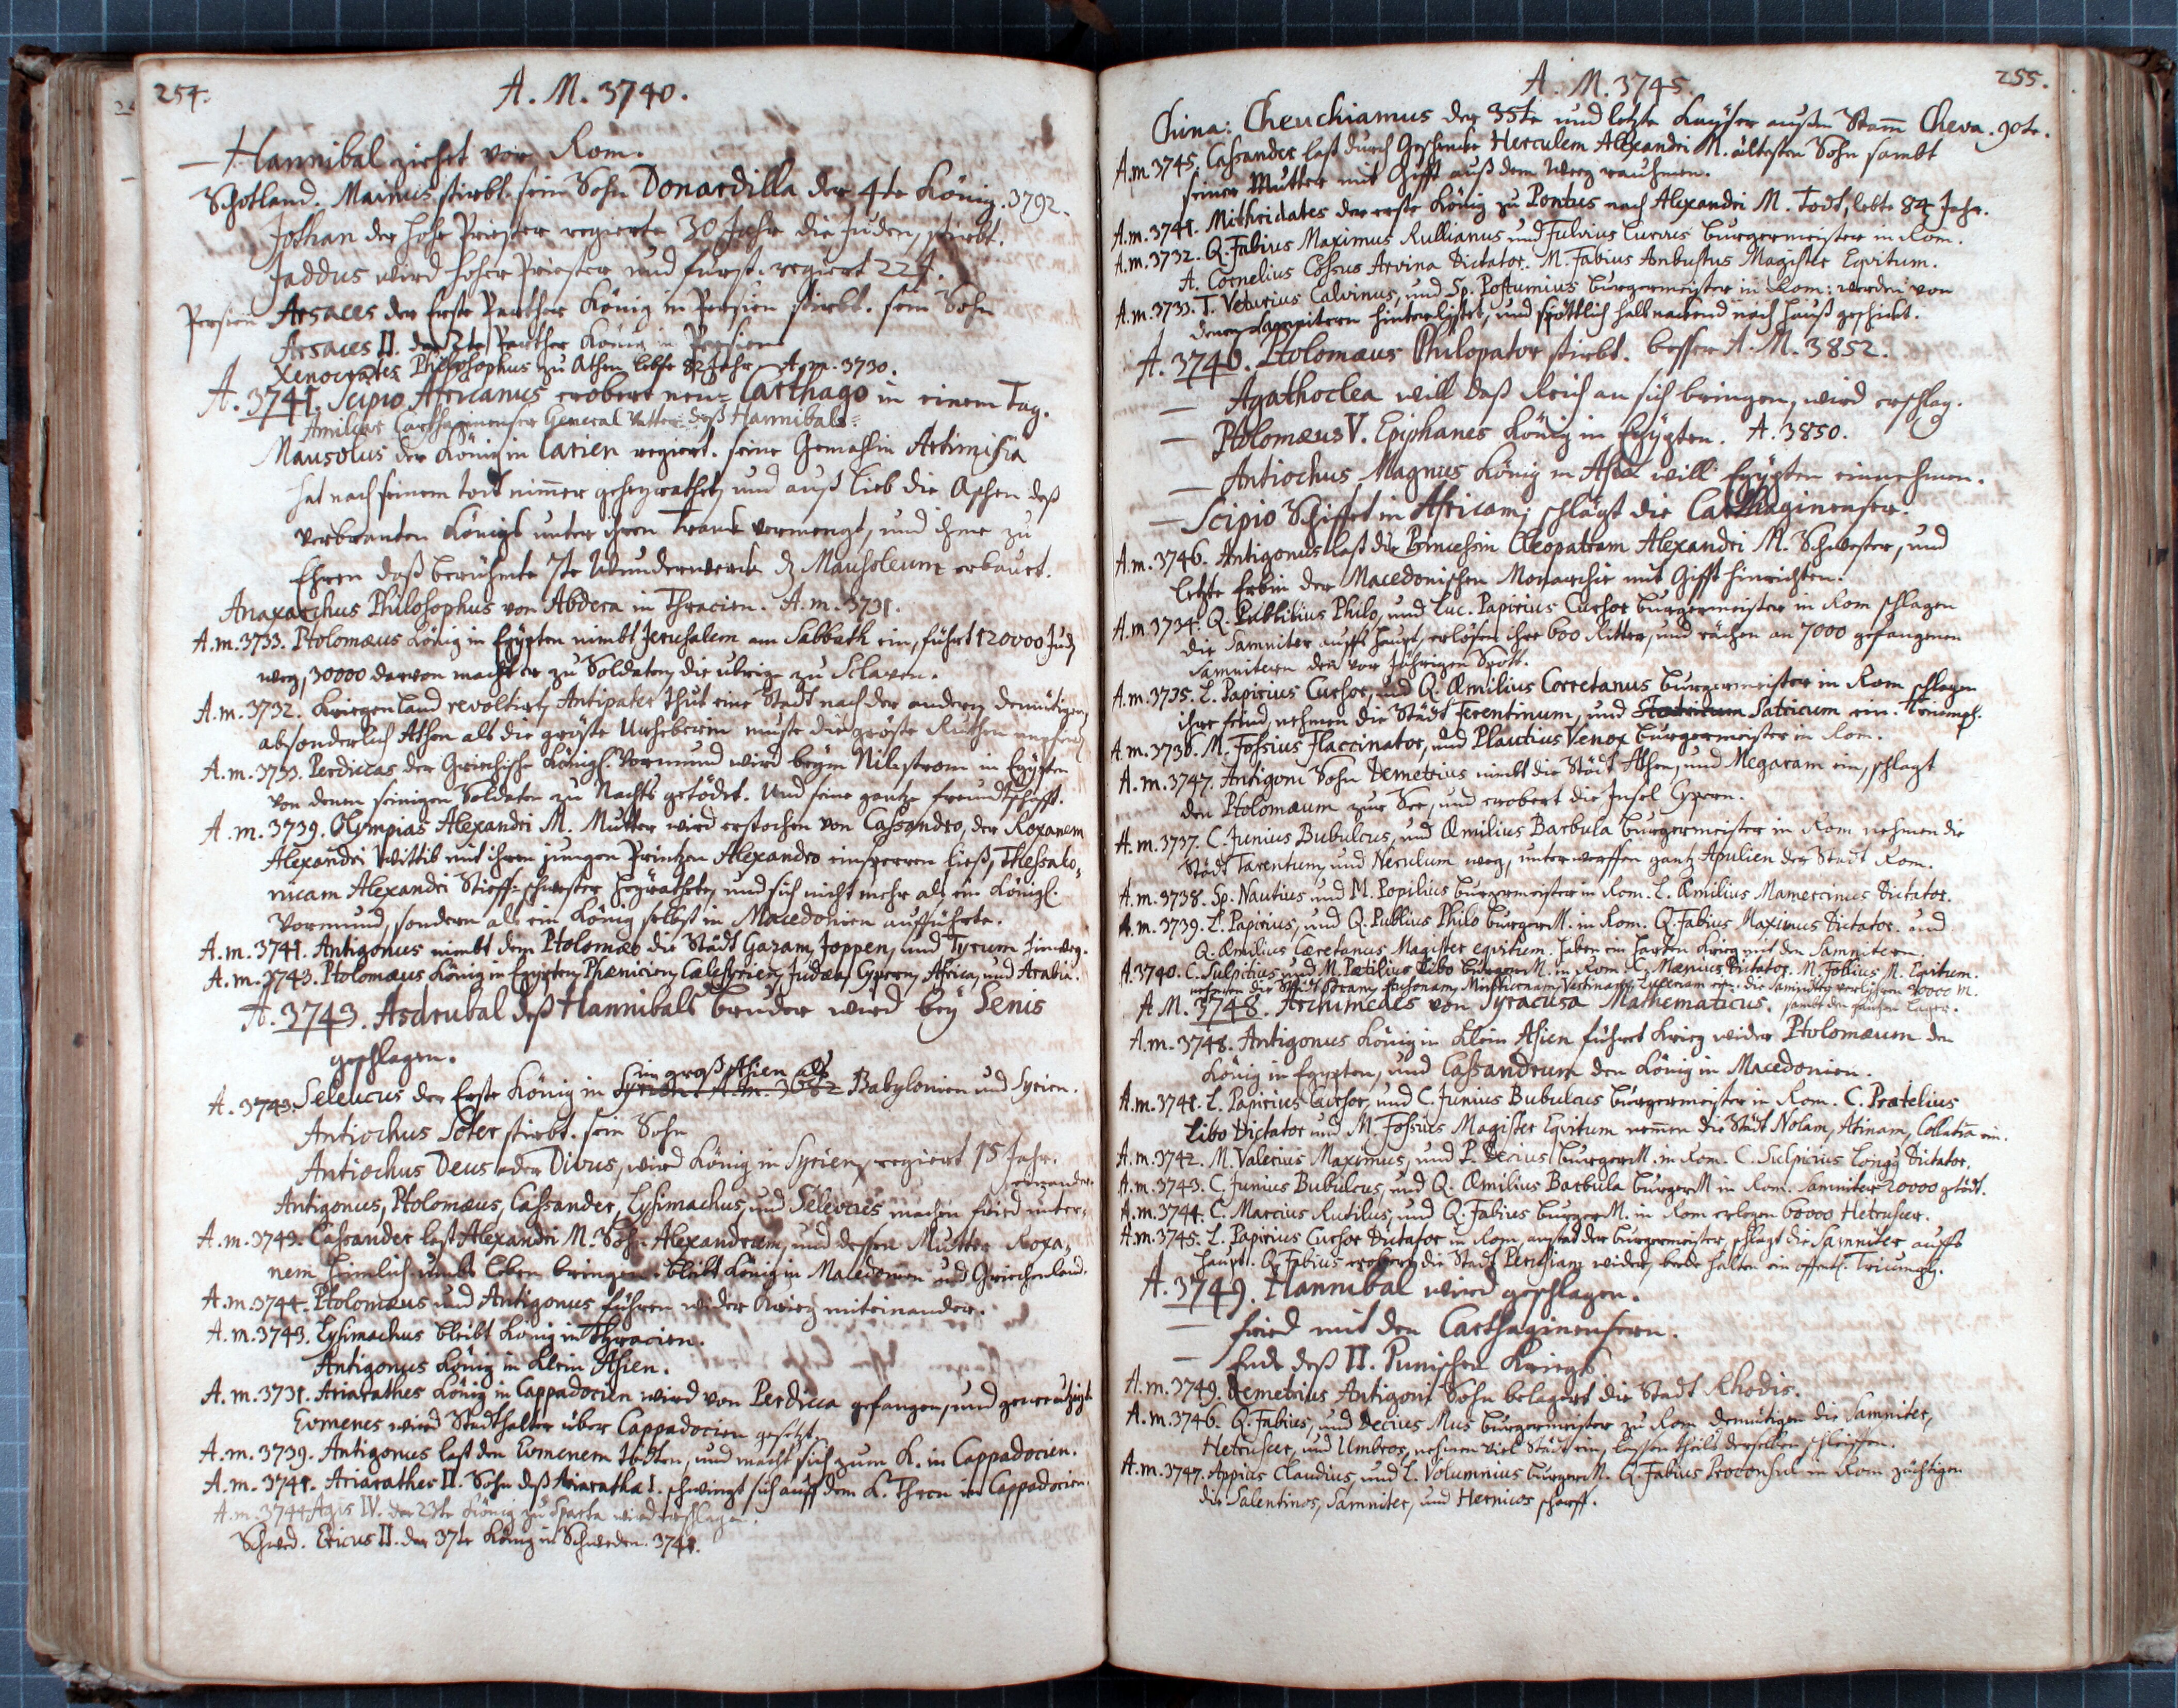 254.
A. M. 3740.
— Hannibal ziehet vor Rom.
Schotland. Mainus stirbt. sein Sohn Donardilla der 4te König. 3792.
Jothan der hohe Priester regierte 30 Jahr die Juden, stirbt.
Jaddus wird hoher Priester und fürst. regiert 22 J.
Persien Arsaces der Erste Parther König in Persien stirbt. sein Sohn
Arsaces II. der 2te Parther König in Persien
Xenocrates Philosophus zu Athen lebte 82 Jahr A. m. 3730.
A. 3741. Scipio Africanus erobert neu=Carthago in einem Tag.
Amilcar Carthaginenser General Vatter deß Hannibals
Mausolus der König in Carien regiert. seine Gemahlin Artimisia
hat nach seinem tod nimmer geheyrathet, und auß lieb die Aschen deß
verbranten Königs unter ihren Tranck vermengt, und ihme zu
Ehren daß berühmte 7te Wunderwerck dz Mausoleum erbauet.
Anaxarchus Philosophus von Abdera in Thracien. A. m. 3731.
A. m. 3733. Ptolomæus König in Egÿpten nimbt Jerusalem am Sabbath ein, führt 120000 Jud
weg, 30000 darvon macht er zu Soldaten, die übrige zu Sclaven.
A. m. 3732. Kriegenland revoltirt, Antipater thut eine Stadt nach der andern demütigen,
absonderlich Athen als die gröste Urheberin muste die gröste Ruthen
A. m. 3733. Perdiccas der Griechische Königl. Vormund wird beÿm Nilstrom in Egÿpten
von denen seinigen Soldaten zu Nachts getödet. Und seine gantze freundtschafft.
A. m. 3739. Olympias Alexandri M. Mutter wird erstochen von Cassandro, der Roxanem
Alexandri Wittib mit ihren jungen Printzen Alexandro einsperren ließ, Thessalo=
nicam Alexandri Stieff=schwester heÿrathete, und sich nicht mehr als ein Königl.
Vormund, sondern als ein König selbst in Macedonien aufführte.
A. m. 3741. Antigonus nimbt dem Ptolomæo die Städt Gazam, Joppen, und Tyrum hinweg.
A. m. 3743. Ptolomæus König in Egypten, Phœnicien, Cælesyrien, Judæa, Cypern, Africa, und Arabia.
A. 3743. Asdrubal deß Hannibals bruder wird beÿ Senis
geschlagen.
A. 3743. Seleucus der Erste König in groß Asien als Babylonien und Syrien.
Antiochus Soter stirbt. sein Sohn
Antiochus Deus oder Divus, wird König in Syrien, regiert 15 Jahr.
Antigonus, Ptolomæus, Cassander, Lysimachus, und Seleucus machen fried unter=
einander.
A. m. 3743. Cassander last Alexandri M. Sohn Alexandrum, und dessen Mutter Roxa=
nem heimlich umbs leben bringen. bleibt König in Macedonien und Griechenland.
A. m. 3744. Ptolomæus und Antigonus führen wider Krieg miteinander.
A. m. 3743. Lysimachus bleibt König in Thracien.
Antigonus König in Klein Asien.
A. m. 3731. Ariarathes König in Cappadocien wird von Perdicca gefangen, und gecreutzigt
Evmenes wird Stadthalter über Cappadocien gesetzt.
A. m. 3739. Antigonus last den Evmenem tödten, und macht sich zum K. in Cappadocien.
A. m. 3741. Ariarathes II. Sohn deß Ariaratha I. schwingt sich auff dem K. Thron in Cappadocien.
A. m. 3744 Agis IV. der 23te König zu Sparta wird erschlagen.
Schwed. Ericus II. der 37te König in Schweden. 3741.
255.
A. M. 3745.
China: Cheuchiamus der 35te und letzte Kaÿser außm Stamm Cheva. 90te.
A. m. 3745. Cassander last durch Geschencke Herculem Alexandri M. ältesten Sohn sambt
seiner Mutter mit Gifft auß dem Weeg rauhmen.
A. m. 3741. Mithridates der erste König zu Pontus nach Alexandri M. Todt, lebte 84 Jahr.
A. m. 3732. Q. Fabius Maximus Rullianus und Fulvius Curvus burgermeister in Rom.
A. Cornelius Cossus Arvina Dictator. M. Fabius Ambustus Magister Eqvitum.
A. m. 3733. T. Veturius Calvinus, und Sp. Postumius burgermeister in Rom: werden von
denen Samnitern hinterlistet, und spöttlich halb nackend nach Hauß geschickt.
A. 3746. Ptolomæus Philopator stirbt. besser A. M. 3852.
— Agathoclea will daß Reich an sich bringen, wird erschlag.
— Ptolomæus V. Epiphanes König in Egÿpten. A. 3850.
— Antiochus Magnus König in Asia will Egÿpten einnehmen.
— Scipio Schiffet in Africam, schlägt die Carthaginenser.
A. m. 3746. Antigonus last die Princessin Cleopatram Alexandri M. Schwester, und
letzte Erbin der Macedonischen Monarchie mit Gifft hinrichten.
A. m. 3734. Q. Publilius Philo, und Luc. Papirius Cursor burgermeister in Rom schlagen
die Samniter auffs haupt, erlösen ihre 600 Ritter, und rächen an 7000 gefangenen
Samnitern den vor jährigen Spott.
A. m. 3735. L. Papirius Cursor, und Q. Æmilius Corretanus burgermeister in Rom schlagen
ihre feind, nehmen die Städt Ferentinum, und Satricum ein. Triumph.
A. m. 3736. M. Fossius Flaccinator, und Plautius Venox burgermeister in Rom.
A. m. 3747. Antigoni Sohn Demetrius nimbt die Städt Athen, und Megaram ein, schlagt
den Ptolomæum zur See, und erobert die Insel Cypern.
A. m. 3737. C. Junius Bubulcus, und Æmilius Barbula burgermeister in Rom nehmen die
Städt Tarentum, und Nerulum weg, unterwerffen gantz Apulien der Stadt Rom.
A. m. 3738. Sp. Nautius und M. Popilius burgermeister in Rom. L. Æmilius Mamercinus Dictator.
A. m. 3739. L. Papirius, und Q. Publius Philo burgerM. in Rom. Q. Fabius Maximus Dictator. und
Q. Æmilius Cæretanus Magister eqvitum. haben ein harten Krieg mit den Samnitern.
A. 3740. C. Sulpitius und M. Pætilius Libo burgerM. in Rom. C. Mænius Dictator. M. Foslius M. Eqvitum.
nehmen die Städt Soram, Ausonam, Minturnam, Vestinam, Luceriam ein. die Samniter verlihren 30000 M.
sambt den gantzen Lager.
A. M. 3748. Archimedes von Syracusa Mathematicus.
A. m. 3748. Antigonus König in Klein Asien führet Krieg wider Ptolomæum den
König in Egypten, und Cassandrum den König in Macedonien.
A. m. 3741. L. Papirius Cursor, und C. Junius Bubulcus burgermeister in Rom. C. Prætelius
Libo Dictator und M. Fossius Magister Eqvitum nemmen die Städt Nolam, Atinam, Collatia ein.
A. m. 3742. M. Valerius Maximus, und P. Decius burgerM. in Rom. C. Sulpicius Longg Dictator.
A. m. 3743. C. Junius Bubulcus, und Q. Æmilius Barbula burgerM in Rom. Samniter 20000 gtödt.
A. m. 3744. C. Marcius Rutilus, und Q. Fabius burgerM. in Rom erlegen 60000 Hetruscer.
A. m. 3745. L. Papirius Cursor Dictator in Rom, anstad der burgermeister, schlagt die Samniter auffs
haupt. Q. Fabius erobert die Stadt Perusiam wider, beede halten ein offentl. Triumph.
A. 3749. Hannibal wird geschlagen.
— fried mit den Carthaginensern.
— Ende deß II. Punischen Kriegs
A. m. 3749. Demetrius Antigoni Sohn belagert die Stadt Rhodis.
A. m. 3746. Q. Fabius, und Decius Mus burgermeister zu Rom demütigen die Samniter,
Hetruscer, und Umbros, nehmen viel Städt ein, lassen theils derselben schleiffen.
A. m. 3747. Appius Claudius, und L. Volumnius burgerM. Q. Fabius Proconsul in Rom züchtigen
die Salentinos, Samniter, und Hernicos scharff.